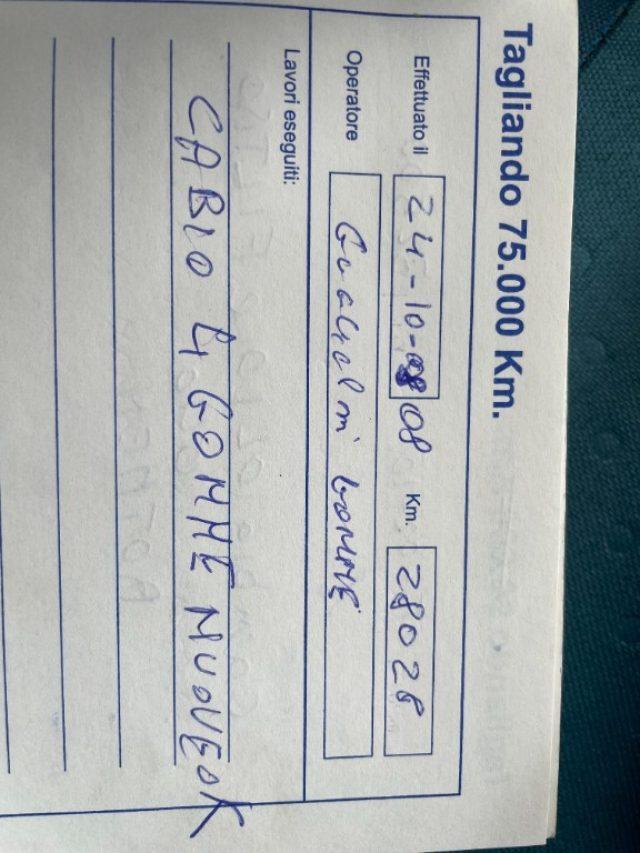 Tagliando 75.000 Km.
Effettuato il 24-10-08 08 Km. 28028
Operatore GOMME
Lavori eseguiti:
CABIO 4 GOMME NUOVE OK